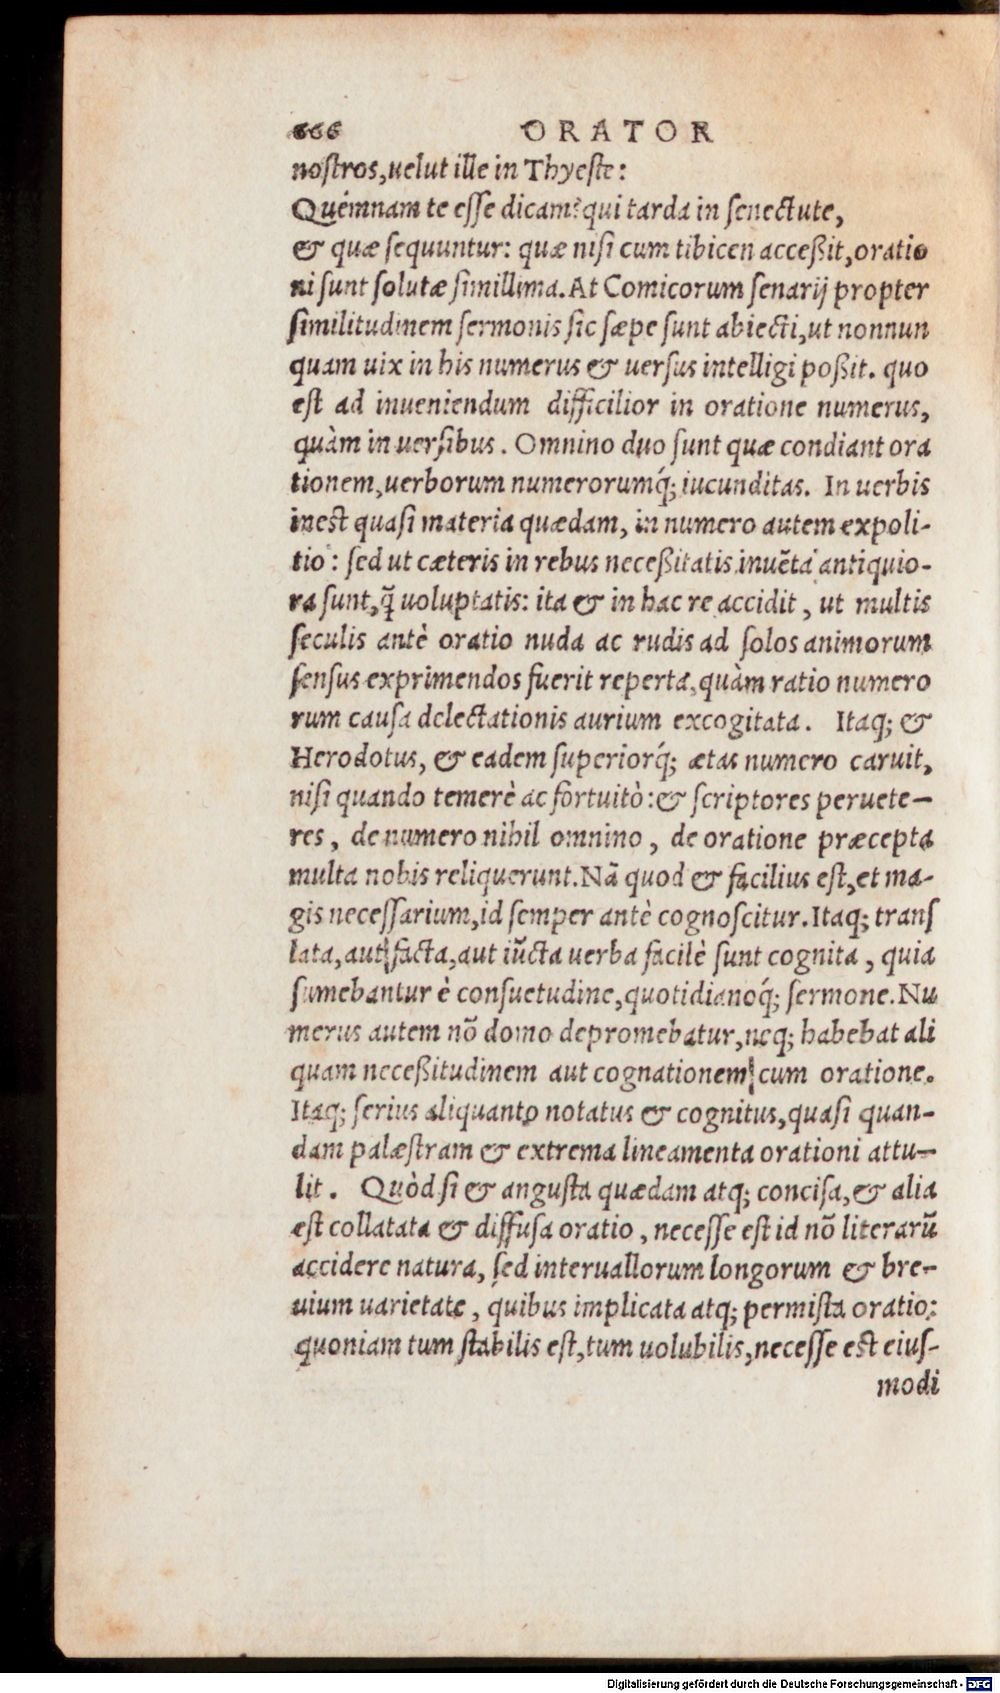 666 ORATOR
nostros, uelut ille in Thyeste:
Quémnam te esse dicam? qui tarda in senectute,
& quæ sequuntur: quæ nisi cum tibicen acceßit, oratio
ni sunt solutæ simillima. At Comicorum senarij propter
similitudinem sermonis sic sæpe sunt abiecti, ut nonnun
quam uix in his numerus & uersus intelligi poßit. quo
est ad inueniendum difficilior in oratione numerus,
quàm in uersibus. Omnino duo sunt quæ condiant ora
tionem, uerborum numerorumq́; iucunditas. In uerbis
inest quasi materia quædam, in numero autem expoli-
tio: sed ut cæteris in rebus neceßitatis inuēta antiquio-
ra sunt, q̃ uoluptatis: ita & in hac re accidit, ut multis
seculis antè oratio nuda ac rudis ad solos animorum
sensus exprimendos fuerit reperta, quàm ratio numero
rum causa delectationis aurium excogitata. Itaq; &
Herodotus, & eadem superiorq́; ætas numero caruit,
nisi quando temerè ac fortuitò: & scriptores peruete-
res, de numero nihil omnino, de oratione præcepta
multa nobis reliquerunt. Nā quod & facilius est, et ma-
gis necessarium, id semper antè cognoscitur. Itaq; trans
lata, aut facta, aut iūcta uerba facilè sunt cognita, quia
sumebantur è consuetudine, quotidianoq́; sermone. Nu
merus autem nō domo depromebatur, neq; habebat ali
quam neceßitudinem aut cognationem cum oratione.
Itaq; serius aliquanto notatus & cognitus, quasi quan-
dam palæstram & extrema lineamenta orationi attu-
lit. Quòd si & angusta quædam atq; concisa, & alia
æst collatata & diffusa oratio, necesse est id nō literarū
accidere natura, sed interuallorum longorum & bre-
uium uarietate, quibus implicata atq; permista oratio:
quoniam tum stabilis est, tum uolubilis, necesse est eius-
modi
Digitalisierung gefördert durch die Deutsche Forschungsgemeinschaft - DFG